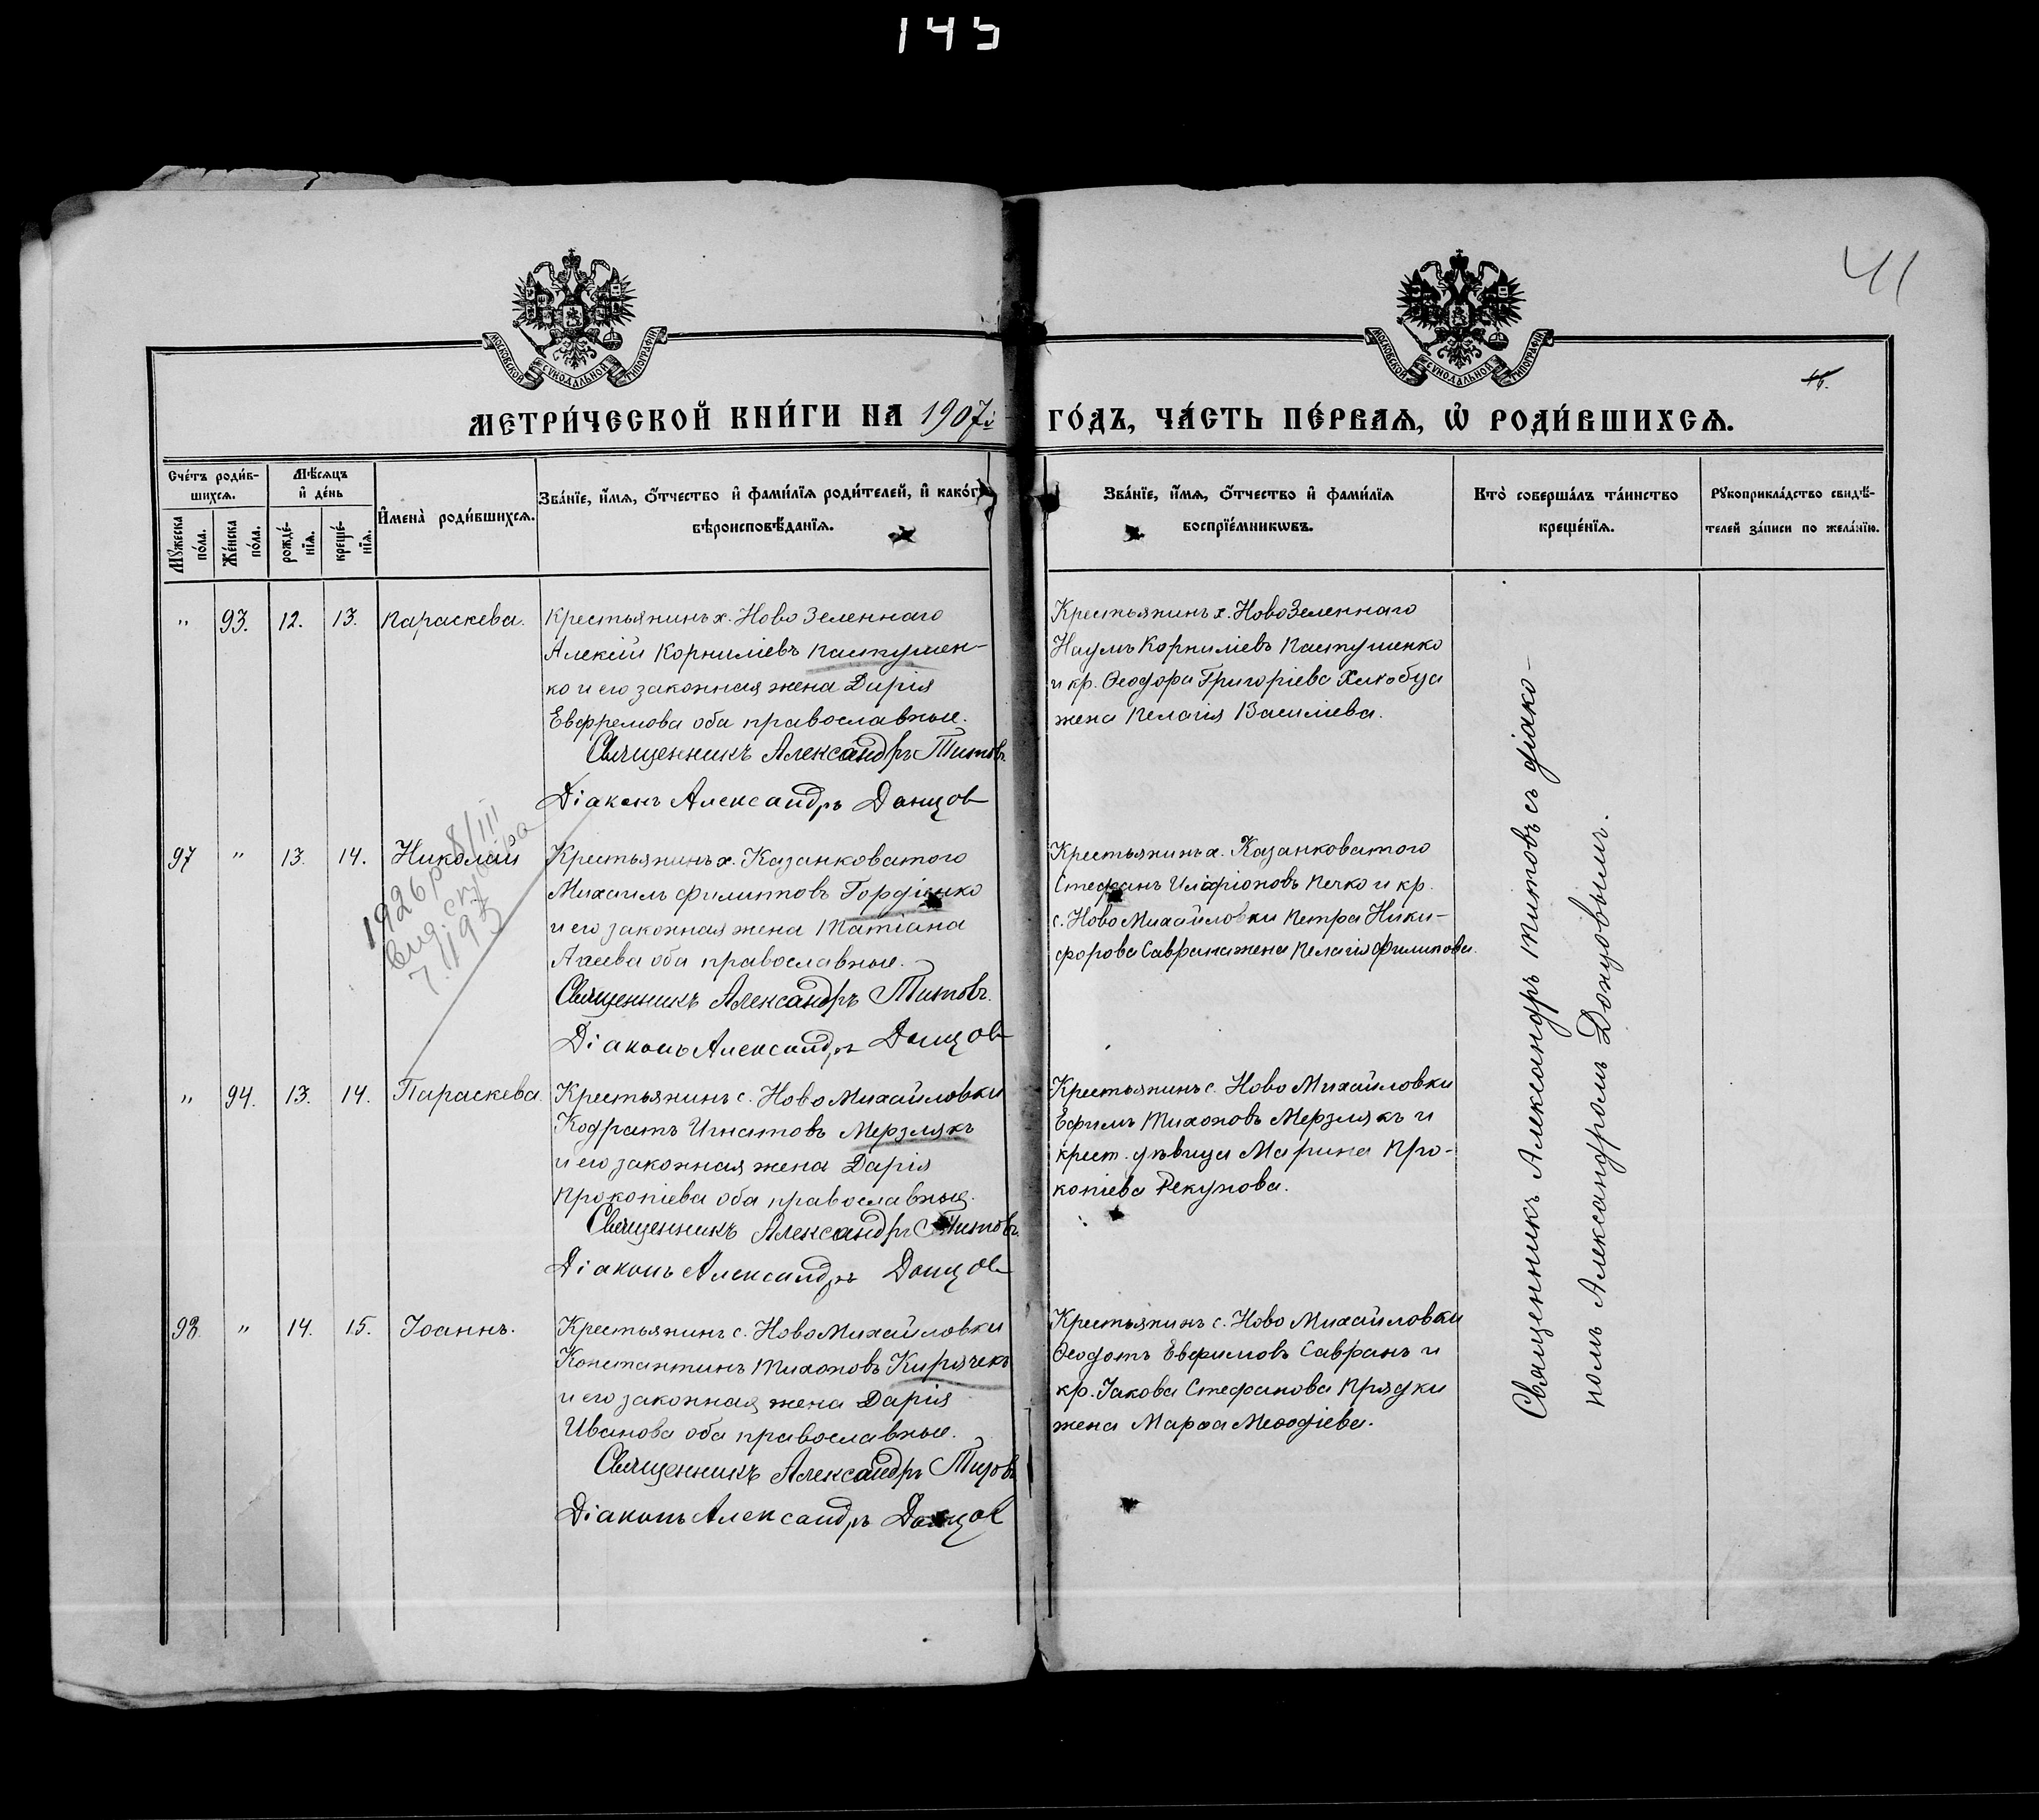 145
41
МОСКОВСКОЙ СѴНОДАЛЬНОЙ ТИПОГРАФІИ
МОСКОВСКОЙ СѴНОДАЛЬНОЙ ТИПОГРАФІИ
МЕТРИ́ЧЕСКОЙ КНИ́ГИ НА 1907й ГО́ДЪ, ЧА́СТЬ ПЕ́РВАѦ, Ѡ҆ РОДИ́ВШИХСѦ.
Сче́тъ роди́в-
шихсѧ.
Мꙋжеска по́ла.
Же́нска по́ла.
Мѣ́сѧцъ
и҆ де́нь
рожде́-нїѧ.
креще́-нїѧ.
И҆мена̀ роди́вшихсѧ.
Зва́нїе, и҆́мѧ, ѻ҆́тчество и҆ фами́лїѧ роди́телей, и҆ како́г
вѣроисповѣ́данїѧ.
Зва́нїе, и҆́мѧ, ѻ҆́тчество и҆ фами́лїѧ
воспрїе́мникѡвъ.
Кто̀ соверша́лъ та́инство
креще́нїѧ.
Рꙋкоприкла́дство свидѣ́-
телей за́писи по жела́нїю.
" 93. 12. 13. Параскева.
Крестьянинъ х. Ново Зеленнаго
Алексiй Корнилiевъ Пастушен-
ко и его законная жена Дарiя
Евфремова оба православные.
Священникъ Александръ Титовъ.
Дiаконъ Александръ Донцов
Крестьянинъ х. Ново Зеленнаго
Наумъ Корнилiевъ Пастушенко
и кр. Ѳеодора Григорiева
жена Пелагiя Василiева.
97 " 13. 14. Николай
1926 р 8/III
Крестьянинъ х. Казанковатого
Михаилъ Филиповъ Гордiенко
и его законная жена Татiана
оба православные.
Священникъ Александръ Титовъ.
Дiаконъ Александръ Донцов
Крестьянинъ х. Казанковатого
Стефанъ Иларiоновъ Печко и кр.
с. Ново Михайловки Петра Ники-
форова Саврана жена Пелагiя Филипова.
" 94. 13. 14. Параскева.
Крестьянинъ с. Ново Михайловки
Кодратъ Игнатовъ Мерзлякъ
и его законная жена Дарiя
Прокопiева оба православные.
Священникъ Александръ Титовъ.
Дiаконъ Александръ Донцов
Крестьянинъ с. Ново Михайловки
Ефимъ Тихоновъ Мерзлякъ и
крест. дѣвица Марина Про-
копiева Рекунова.
98. " 14. 15. Іоаннъ.
Крестьянинъ с. Ново Михайловки
Константинъ Тихоновъ Кирячекъ
и его законная жена Дарiя
Иванова оба православные.
Священникъ Александръ Титовъ
Дiаконъ Александръ Донцов
Крестьянинъ с. Ново Михайловки
Ѳеодотъ Евфимовъ Савранъ и
кр. Іакова Стефанова Прядки
жена Марѳа Меѳодiева.
Священникъ Александръ Титовъ съ дiако-
номъ Александромъ Донцовымъ.